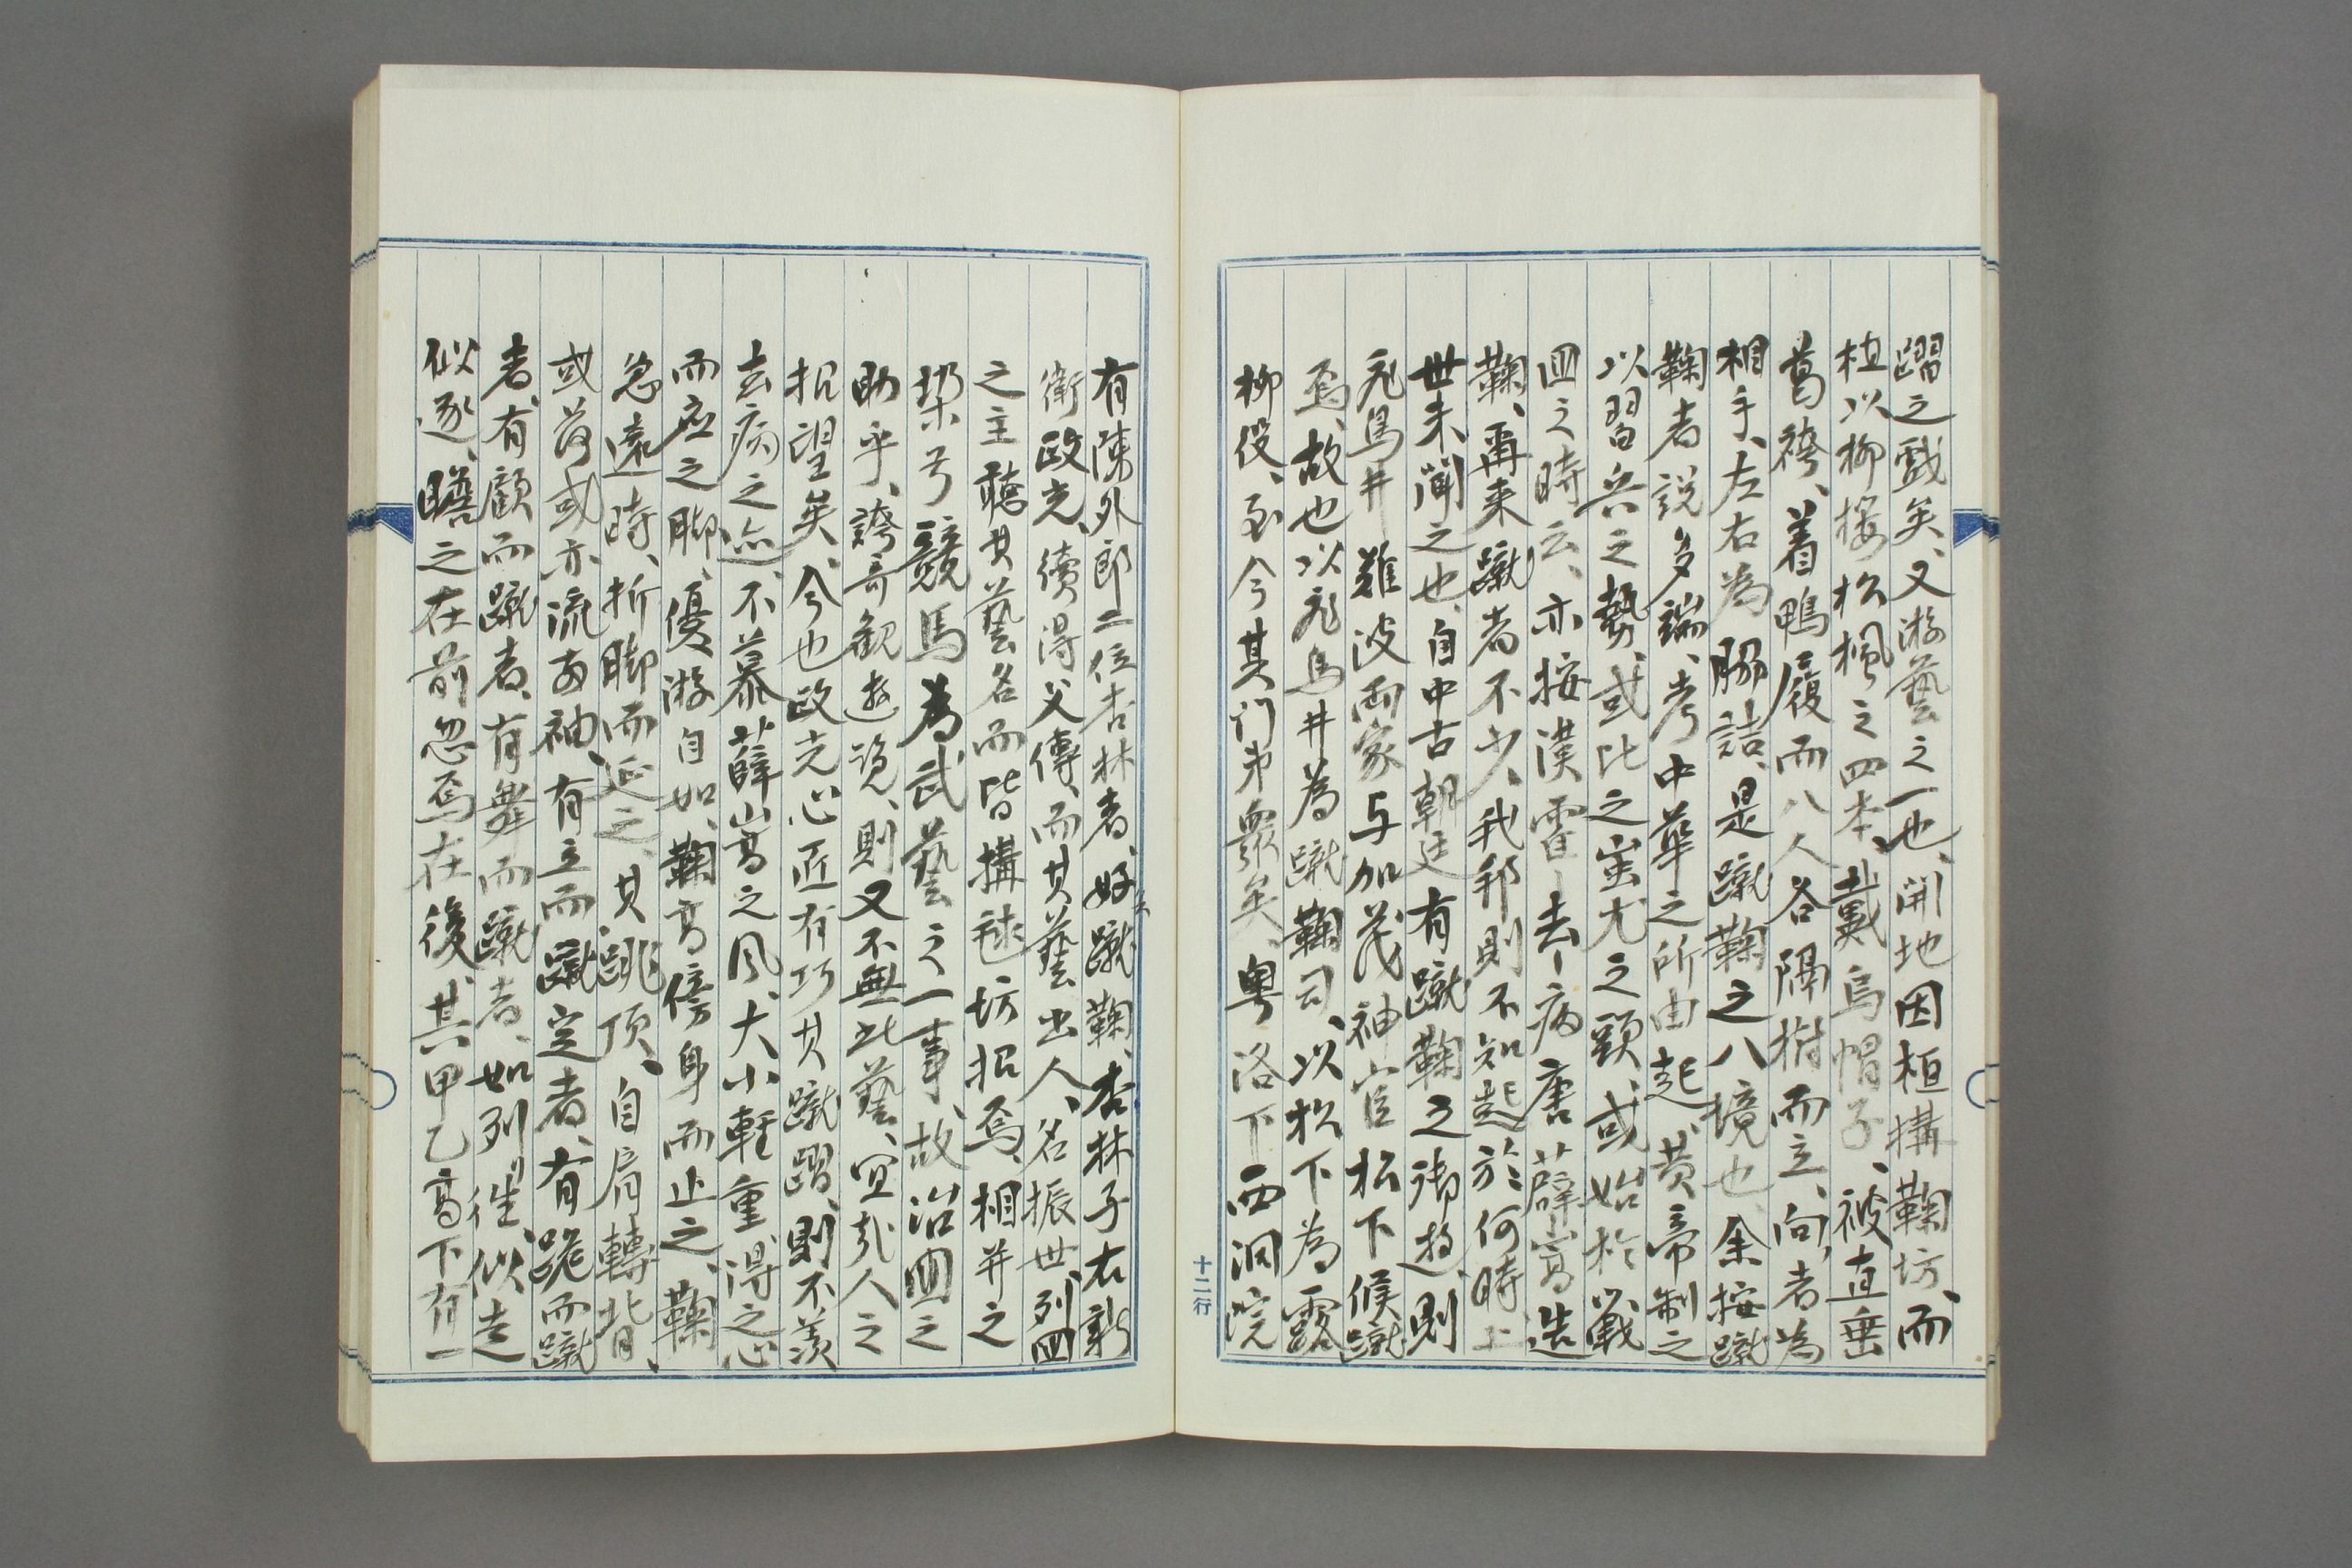 蹈之戲矣、又游藝之一也、開地因極構鞠坊、而
植以柳桜松楓之四本、戴烏帽子、被直垂
葛袴、着鴨履而八人各隔樹而立、向者為
相手、左右為脇詰、是蹴鞠之八境也、余按蹴
鞠者説多端、考中華之所由起、黄帝制之
以習兵之勢、或比之蚩尤之頭、或始於戰
國之時云、亦按漢霍去病唐薛嵩造
鞠、再来蹴者不少、我邦則不知起於何時、上
世未聞之也、自中古朝廷有蹴鞠之御遊、則
飛鳥井難波両家与加茂神官松下候蹴
焉、故也以飛鳥井為蹴鞠司、以松下為露
柳役、至今其门弟衆矣、粤洛下西洞院
十二行
有陳外郎二位杏林者、好蹴鞠、杏林子右新
衛政光、續得父傳、而其藝出人、名振世、列國
之主聴其藝名而皆構毬坊招焉、相并之
犎弓競馬為武藝之一事、故治國之
助乎、誇奇観遊覧、則又不無此藝、宜哉人之
招望矣、今也政光心匠有巧其蹴蹈、則不羨
去病之迹、不慕薛嵩之风、大小軽重得之心
而应之脚、優游自如、鞠高傍身而止之、鞠
忽遠時、折脚而延之、其跳頂、自肩轉背、
或落或亦流両袖、有立而蹴定者、有跪而蹴
者、有顧而蹴者、有舞而蹴者、如列催、似走
似逐、瞻之在前忽焉在後、其甲乙高下有一